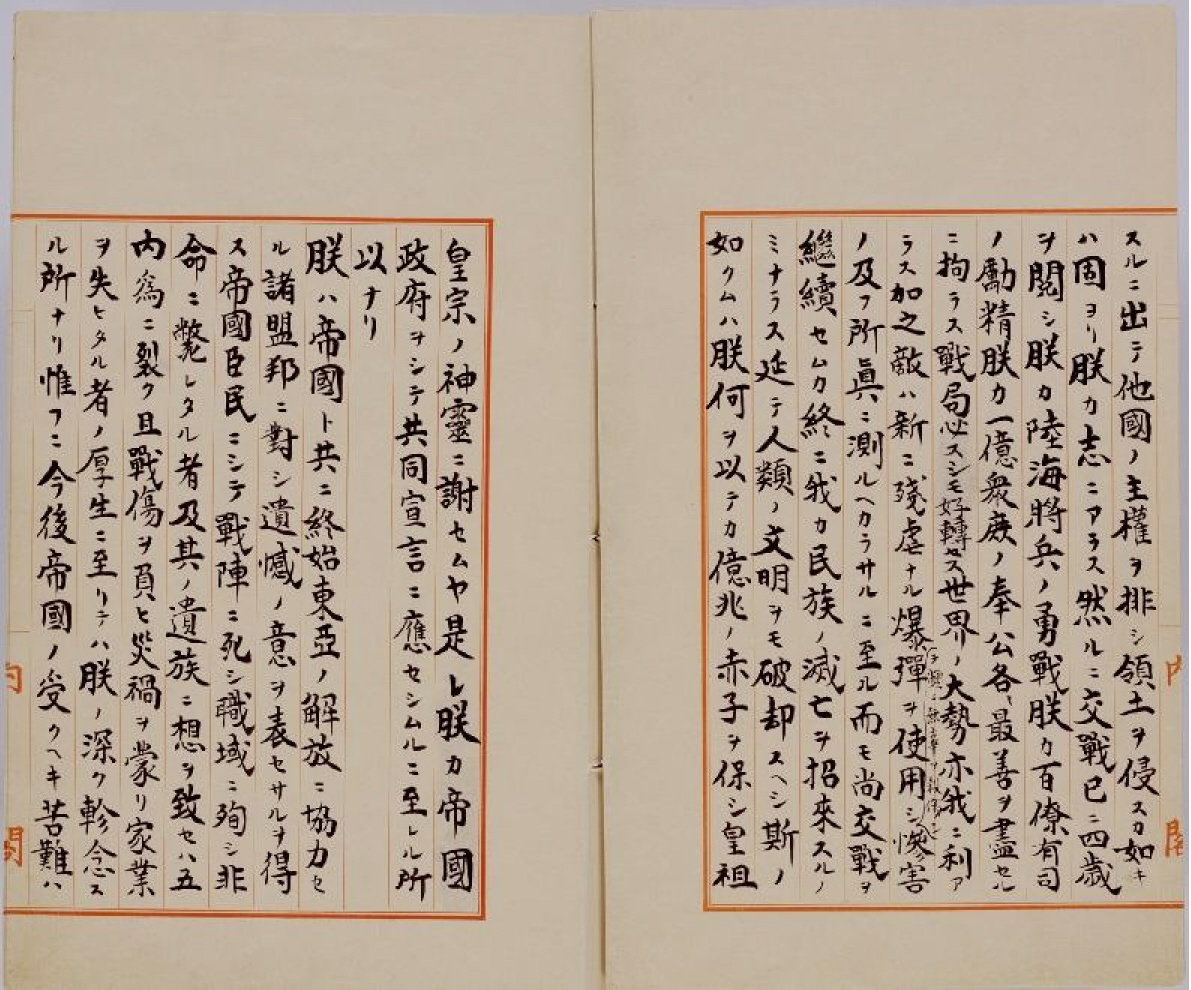 スルニ出テ他國ノ主權ヲ排シ領土ヲ侵スカ如キ
ハ固ヨリ朕カ志ニアラス然ルニ交戰已ニ四歳
ヲ閲シ朕カ陸海將兵ノ勇戰朕カ百僚有司
ノ勵精朕カ一億衆庶ノ奉公各〻最善ヲ盡セル
ニ拘ラス戰局必スシモ好轉セス世界ノ大勢亦我ニ利ア
ラス加之敵ハ新ニ殘虐ナル爆彈ヲ使用シ頻ニ無辜ヲ殺傷シ慘害
ノ及フ所眞ニ測ルヘカラサルニ至ル而モ尚交戰ヲ
繼續セムカ終ニ我カ民族ノ滅亡ヲ招來スルノ
ミナラス延テ人類ノ文明ヲモ破却スヘシ斯ノ
如クムハ朕何ヲ以テカ億兆ノ赤子ヲ保シ皇祖
皇宗ノ神靈ニ謝セムヤ是レ朕カ帝國
政府ヲシテ共同宣言ニ應セシムルニ至レル所
以ナリ
朕ハ帝國ト共ニ終始東亞ノ解放ニ協力セ
ル諸盟邦ニ對シ遺憾ノ意ヲ表セサルヲ得
ス帝國臣民ニシテ戰陣ニ死シ職域ニ殉シ非
命ニ斃レタル者及其ノ遺族ニ想ヲ致セハ五
内爲ニ裂ク且戰傷ヲ負ヒ災禍ヲ蒙リ家業
ヲ失ヒタル者ノ厚生ニ至リテハ朕ノ深ク軫念ス
ル所ナリ惟フニ今後帝國ノ受クヘキ苦難ハ
内閣
内閣